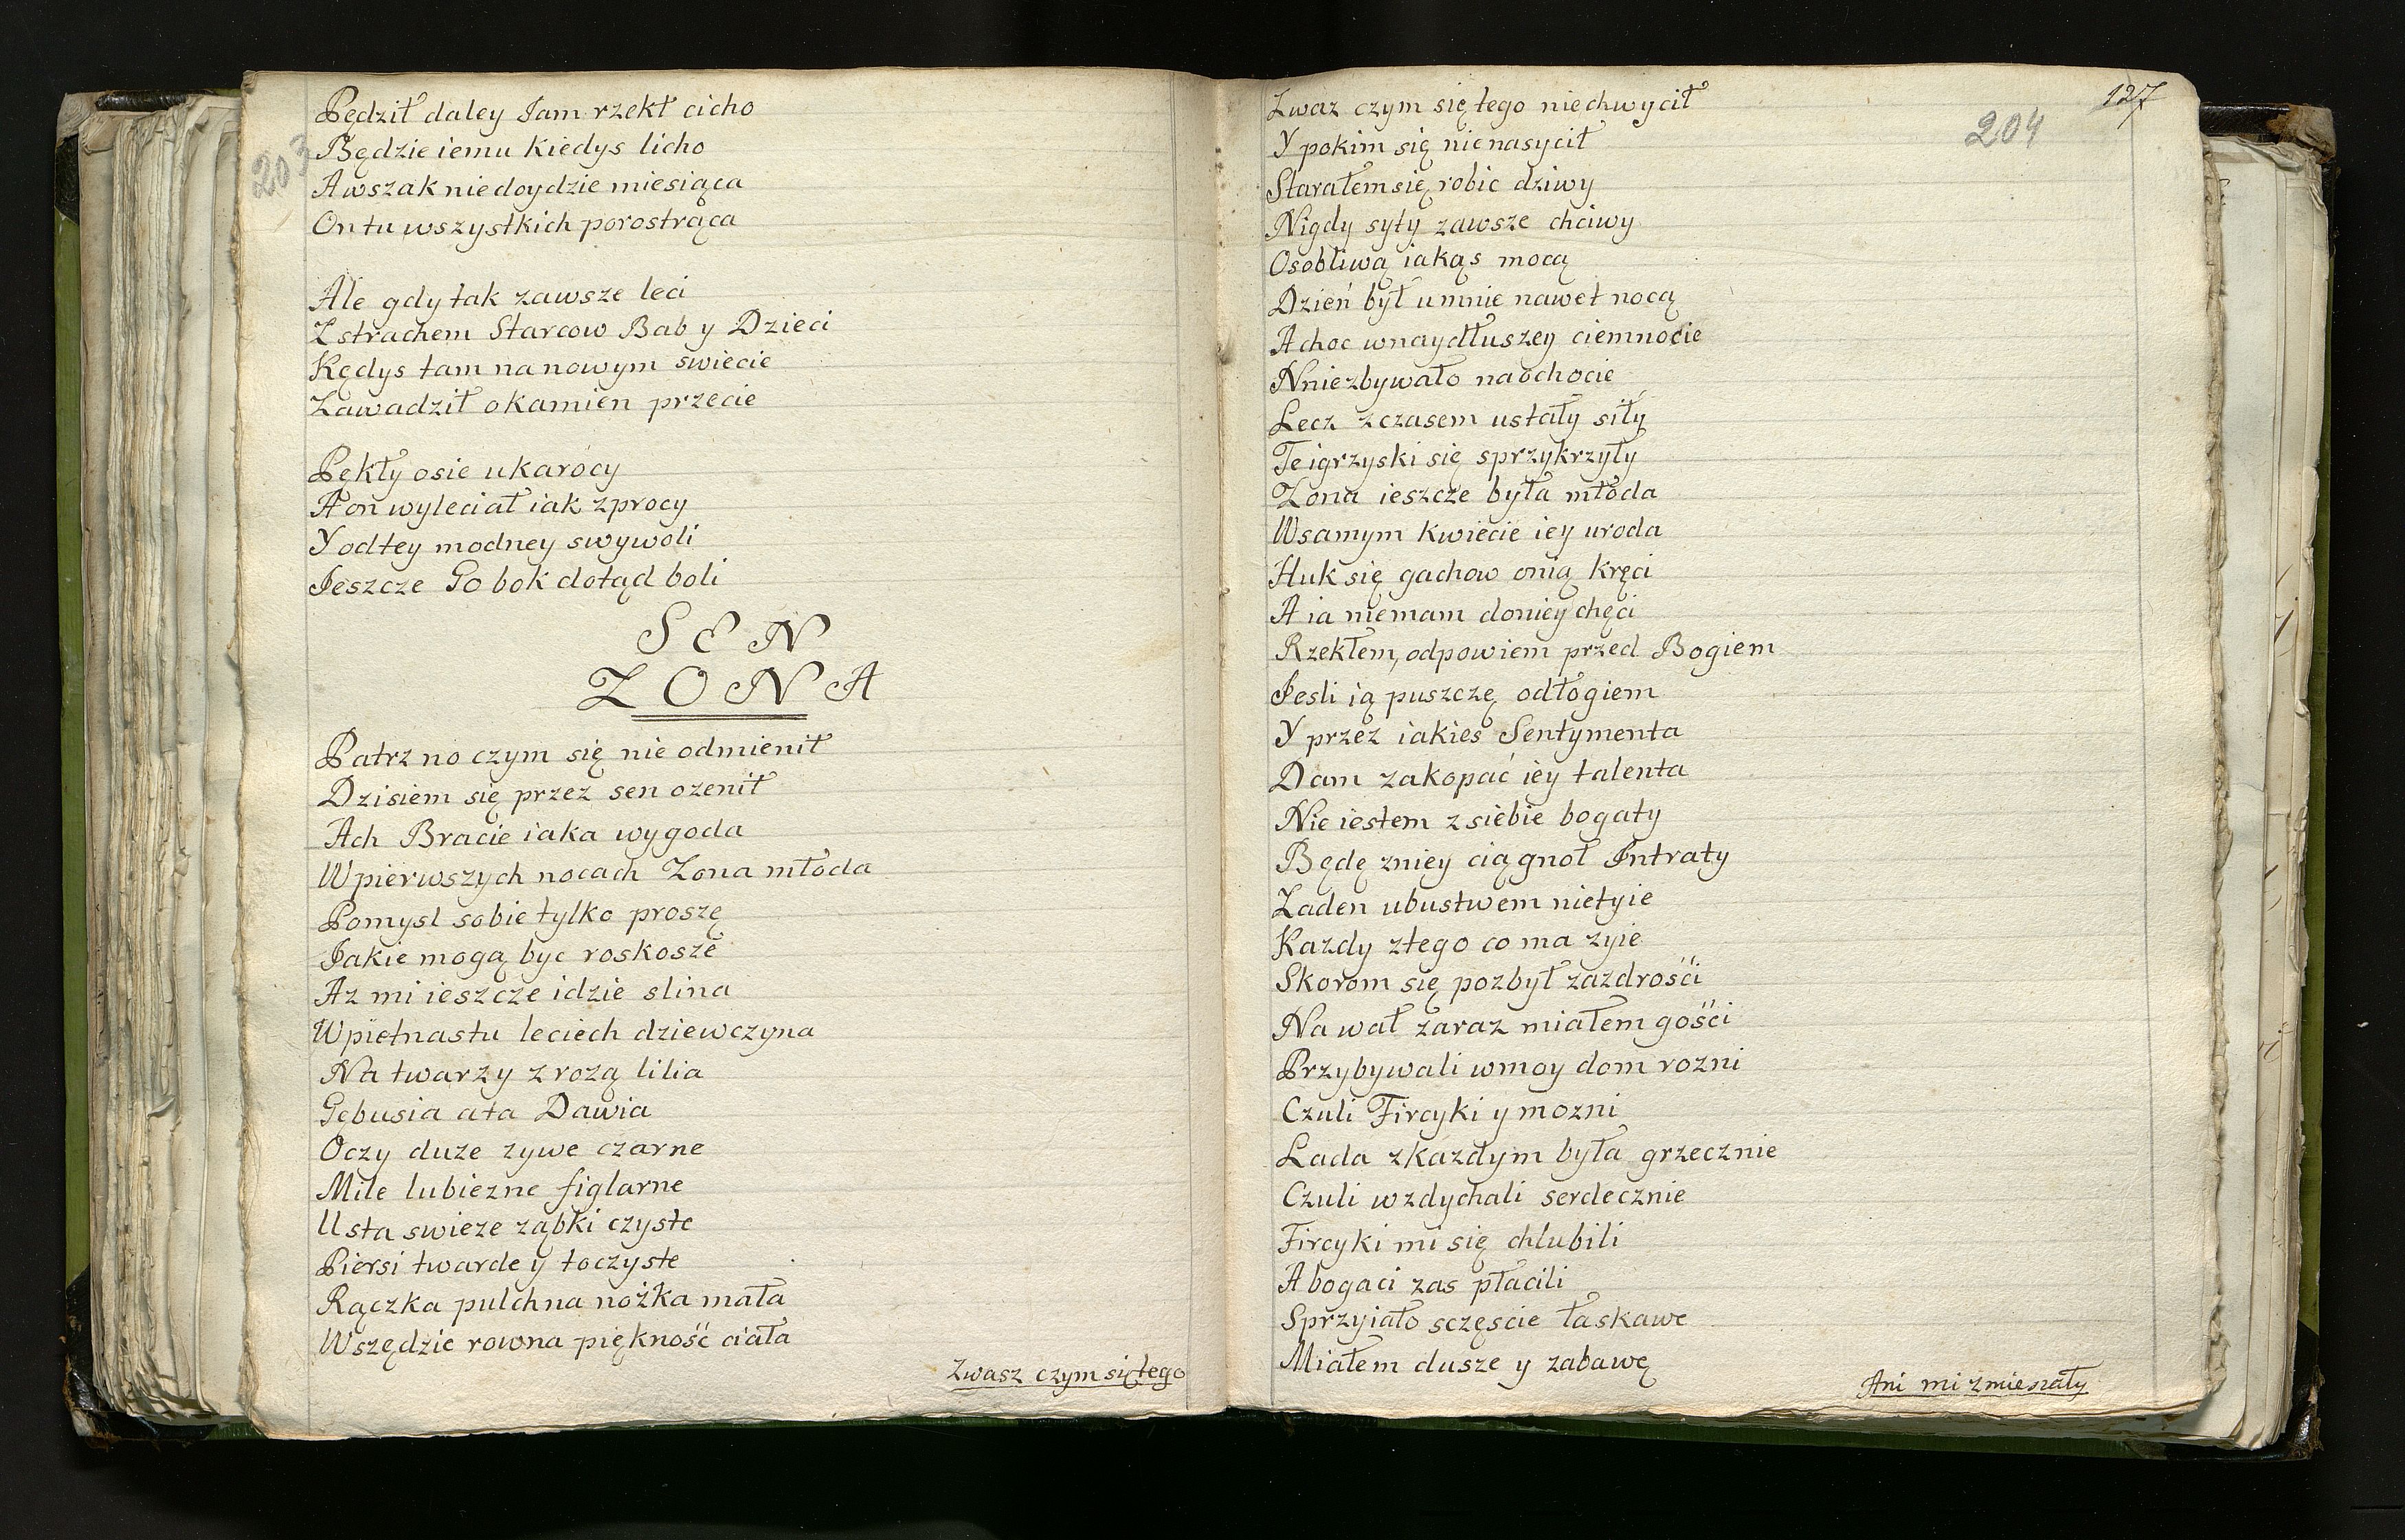 203
Pędził daley Jam rzekł cicho
Będzie iemu kiedys licho
A wszak niedoydzie miesiąca
On tu wszystkich porostrąca
Ale gdy tak zawsze leci
Z strachem Starcow Bab y Dzieci
Kędys tam na nowym swiecie
Zawadził o kamien przecie
Pękły osie u karocy
A on wyleciał iak z procy
Y od tey modney swywoli
Jeszcze Go bok dotąd boli
SEN
ZONA
Patrz no czym się nie odmienił
Dzisiem się przez sen ozenił
Ach Bracie iaka wygoda
W pierwszych nocach Zona młoda
Pomysl sobie tylko proszę
Jakie mogą byc roskosze
Az mi ieszcze idzie slina
W pietnastu leciech dziewczyna
Na twarzy z rozą lilia
Gębusia ata Dawia
Oczy duze zywe czarne
Miłe lubiezne figlarne
Usta swieze ząbki czyste
Piersi twarde y toczyste
Rączka pulchna nożka mała
Wszędzie rowna piękność ciała
Zwasz czym się tego
127
204
Zwaz czym się tego niechwycił
Y pokim się nienasycił
Starałem się robic dziwy
Nigdy syty zawsze chciwy
Osobliwą iakąs mocą
Dzień był u mnie nawet nocą
A choc w naydłuszey ciemnocie
Nniezbywało na ochocie
Lecz z czasem ustały siły
Te igrzyski się sprzykrzyły
Zona ieszcze była młoda
W samym kwiecie iey uroda
Huk się gachow o nią kręci
A ia niemam do niey chęci
Rzekłem, odpowiem przed Bogiem
Jesli ią puszczę odłogiem
Y przez iakies Sentymenta
Dam zakopać iey talenta
Nie iestem z siebie bogaty
Będę z niey ciągnoł Intraty
Zaden ubustwem nietyie
Kazdy z tego co ma zyie
Skorom się pozbył zazdrośći
Nawał zaraz miałem gośći
Przybywali w moy dom rozni
Czuli Fircyki y mozni
Lada z kazdym była grzecznie
Czuli wzdychali serdecznie
Fircyki mi się chlubili
A bogaci zas płacili
Sprzyiało sczęscie łaskawe
Miałem dusze y zabawę
Ani mi zmienały